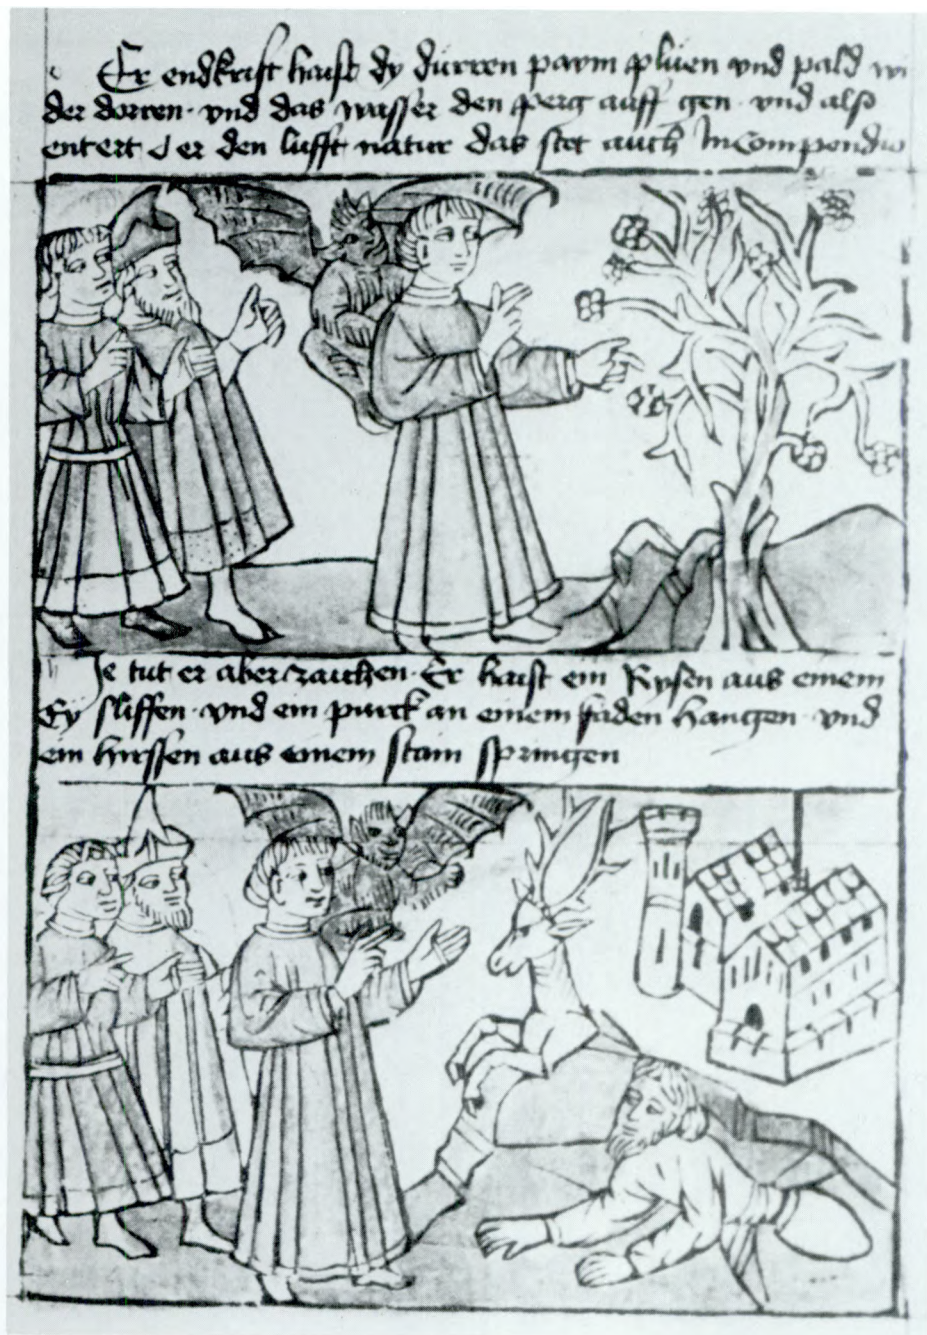 Er endkrist haist dy durren pawm pluen vnd pald wi
der dorren · vnd das wasser den perg auff gen · vnd also
entert er den lufft natur das stet auch In Compendio
Je tut er aber zaichen · Er haist ein Rysen aus einem
Ey sliffen · vnd ein purck an einem faden hangen · vnd
ein hirssen aus einem stain springen